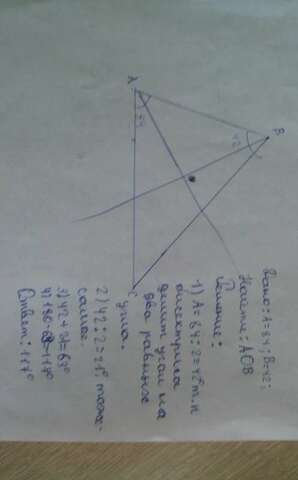 A
84
B
42
C
Дано: A=84; B=42;
Найти: AOB
Решение:
1) A=84:2=42° т.к
биссектриса
делит угол на
два равных
угла.
2) 42:2=21° тоже
самое.
3) 42+21=63°
4) 180-63=117°
Ответ: 117°